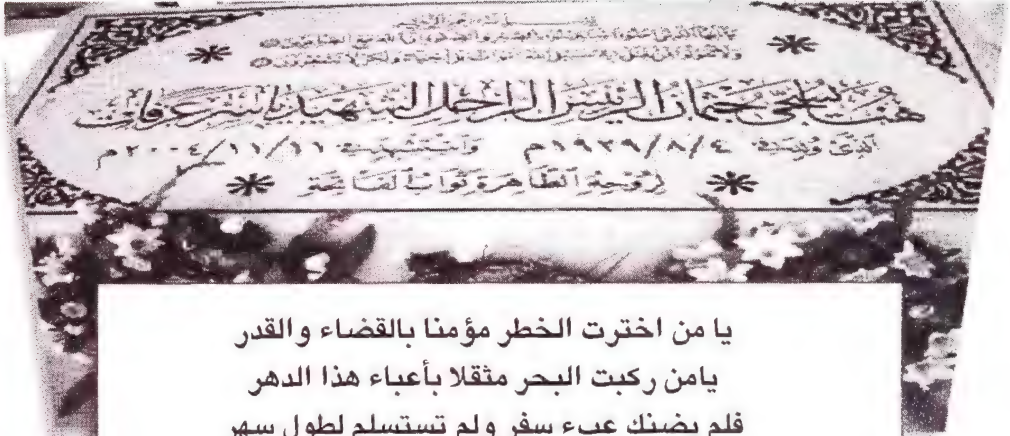 بسم الله الرحمن الرحيم
هنا يسجى جثمان الرئيس الراحل الشهيد ياسر عرفات
الذي ولد ٤/٨/١٩٢٩م واستشهد ١١/١١/٢٠٠٤م
لروحه الطاهرة ثواب الفاتحة
يا من اخترت الخطر مؤمنا بالقضاء والقدر
يامن ركبت البحر مثقلا بأعباء هذا الدهر
فلم يضنك عبء سفر ولم تستسلم لطول سهر